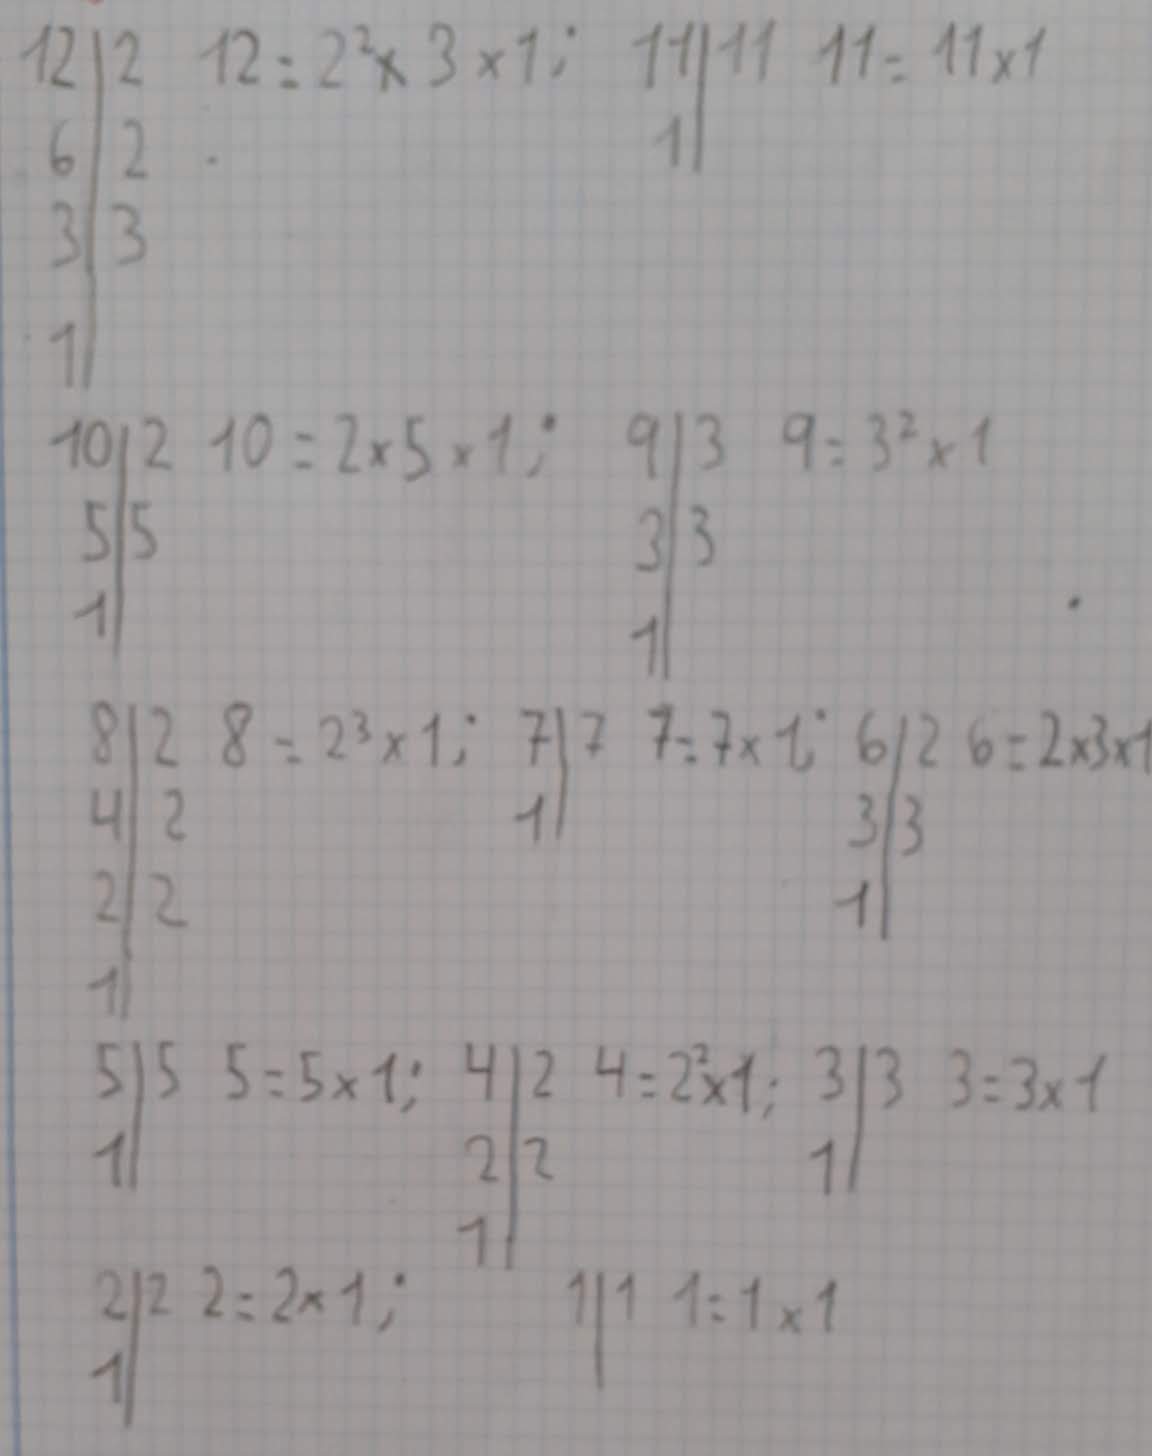 12|2 12=2²x3x1; 11|11 11=11x1
6|2 1|
3|3
1|
10|2 10=2x5x1; 9|3 9=3²x1
5|5 3|3
1| 1|
8|2 8=2³x1; 7|7 7=7x1; 6|2 6=2x3x1
4|2 1| 3|3
2|2 1|
1|
5|5 5=5x1; 4|2 4=2²x1; 3|3 3=3x1
1| 2|2 1|
1|
2|2 2=2x1; 1|1 1=1x1
1|